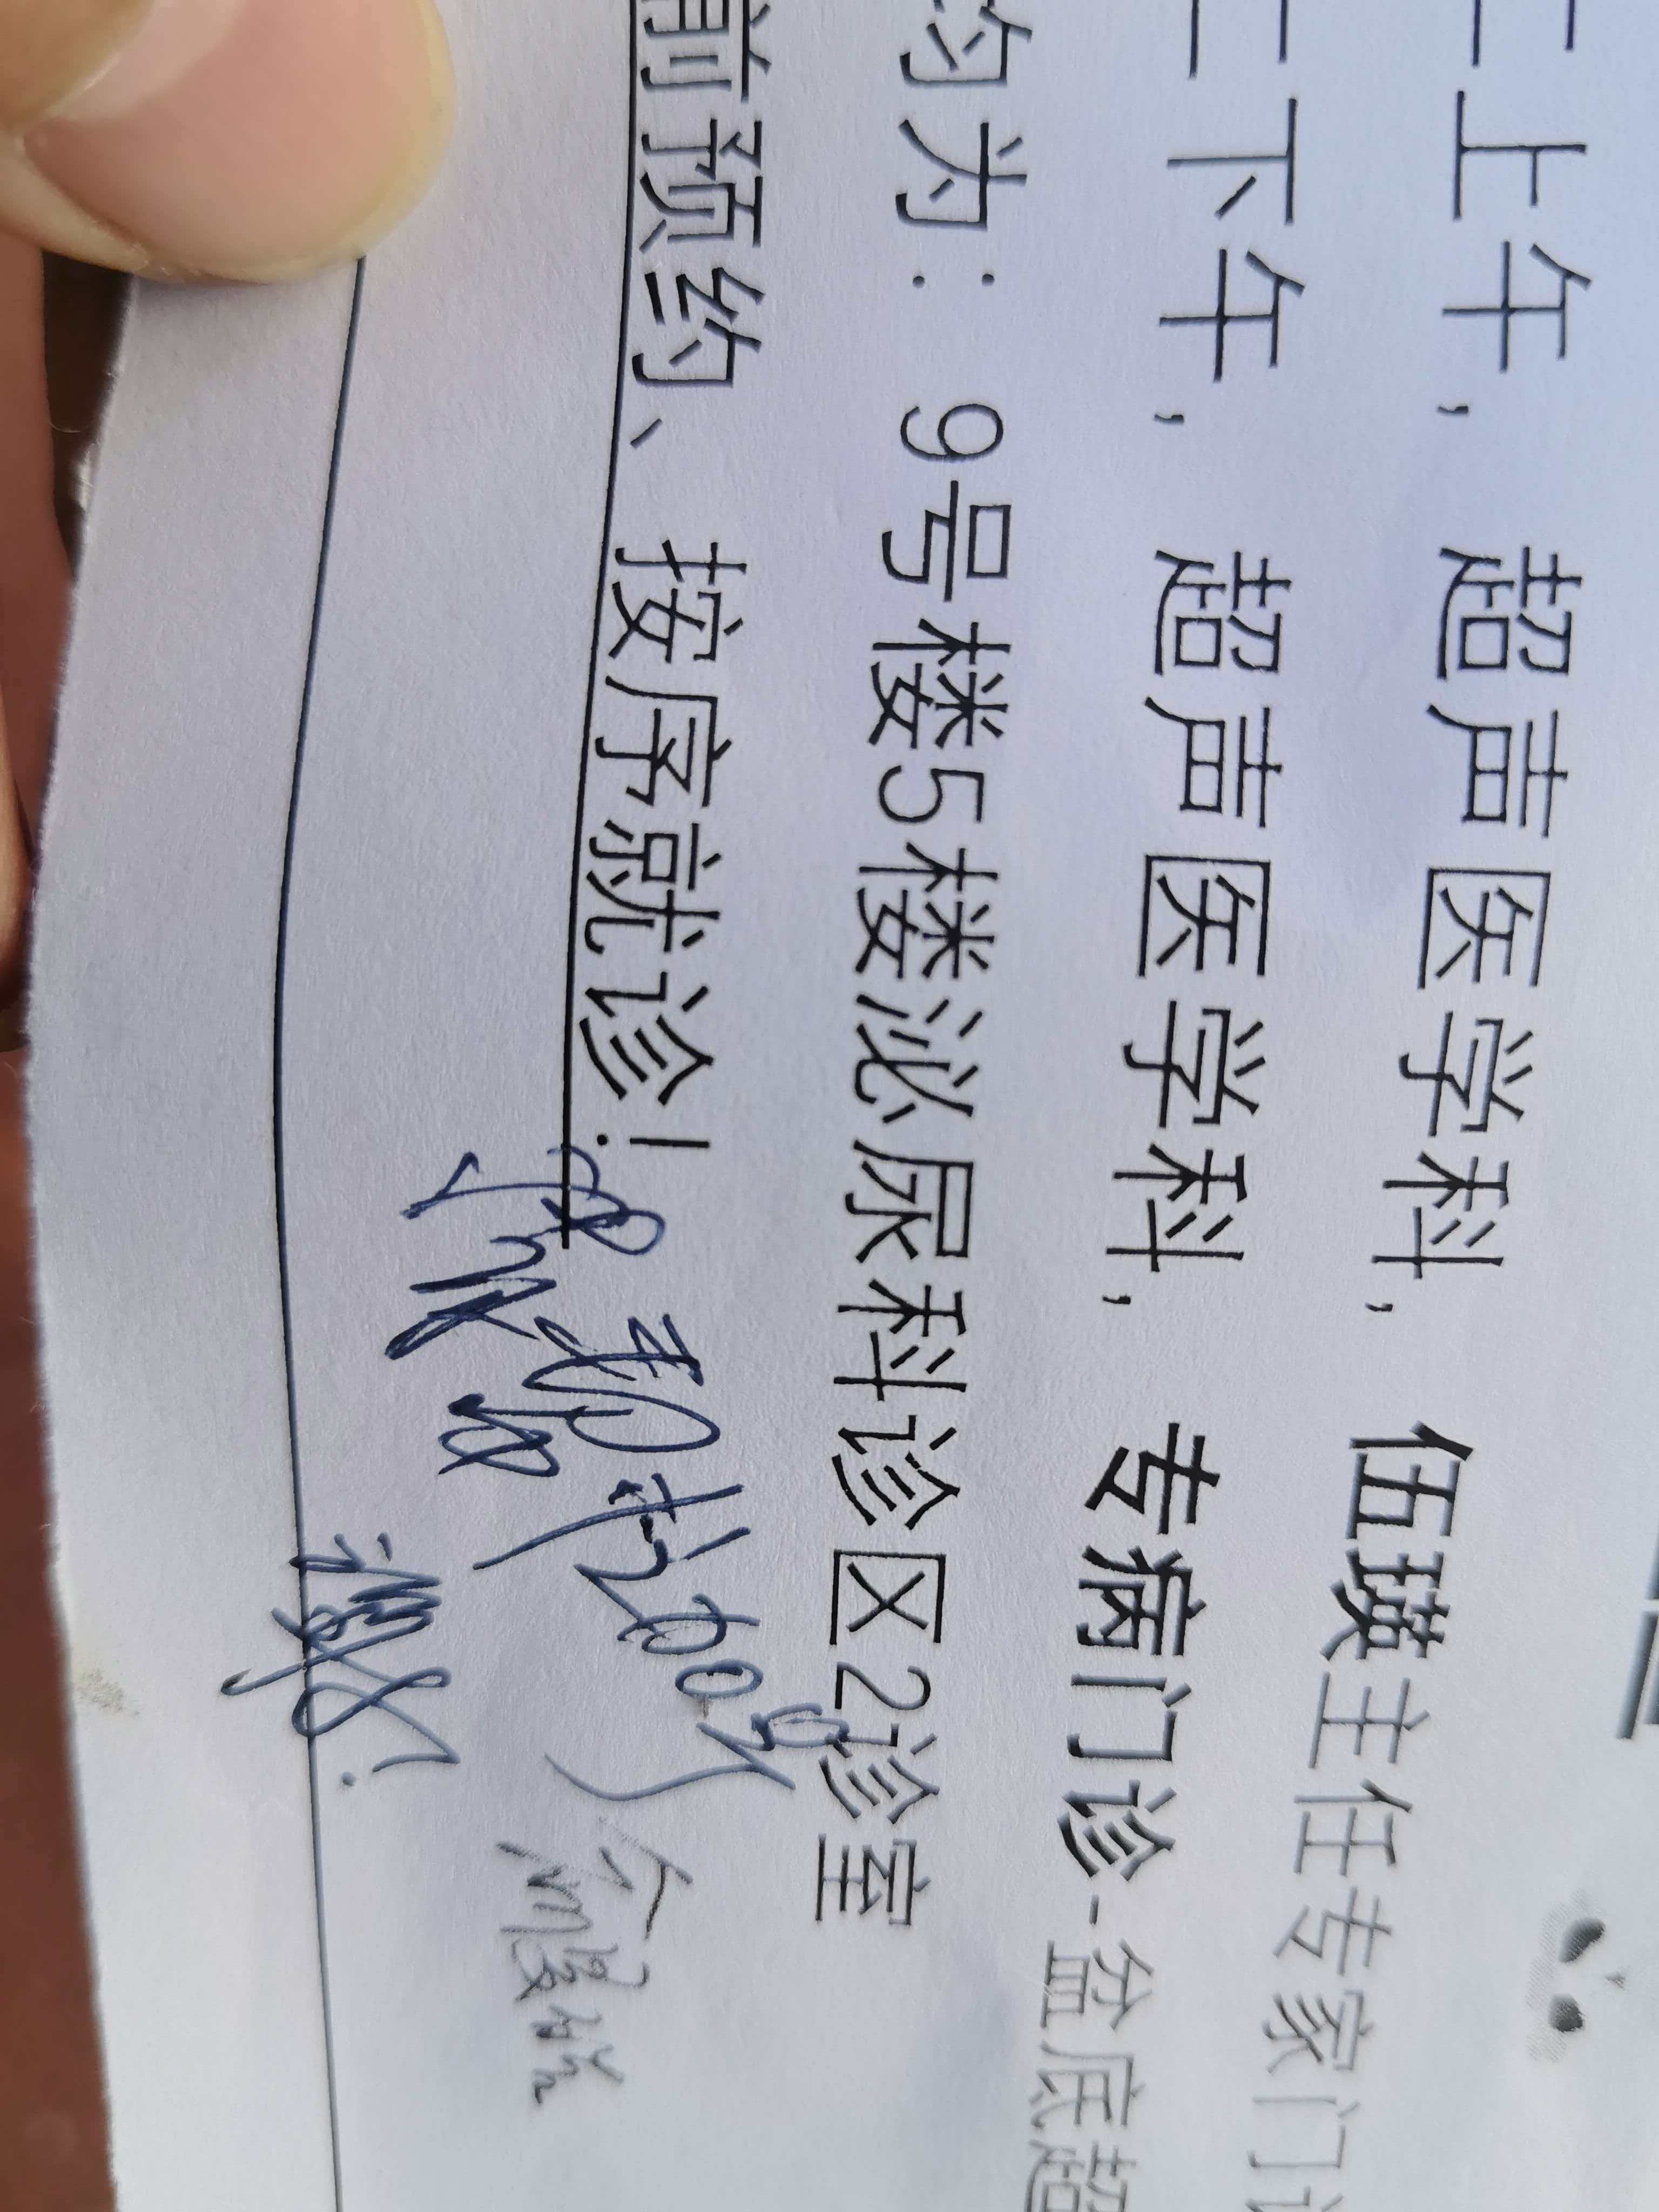 二上午，超声医学科，伍瑛主任专家门诊
二下午，超声医学科，专病门诊-盆底超
约为：9号楼5楼泌尿科诊区2诊室
前预约、按序就诊！
200号
谢谢！